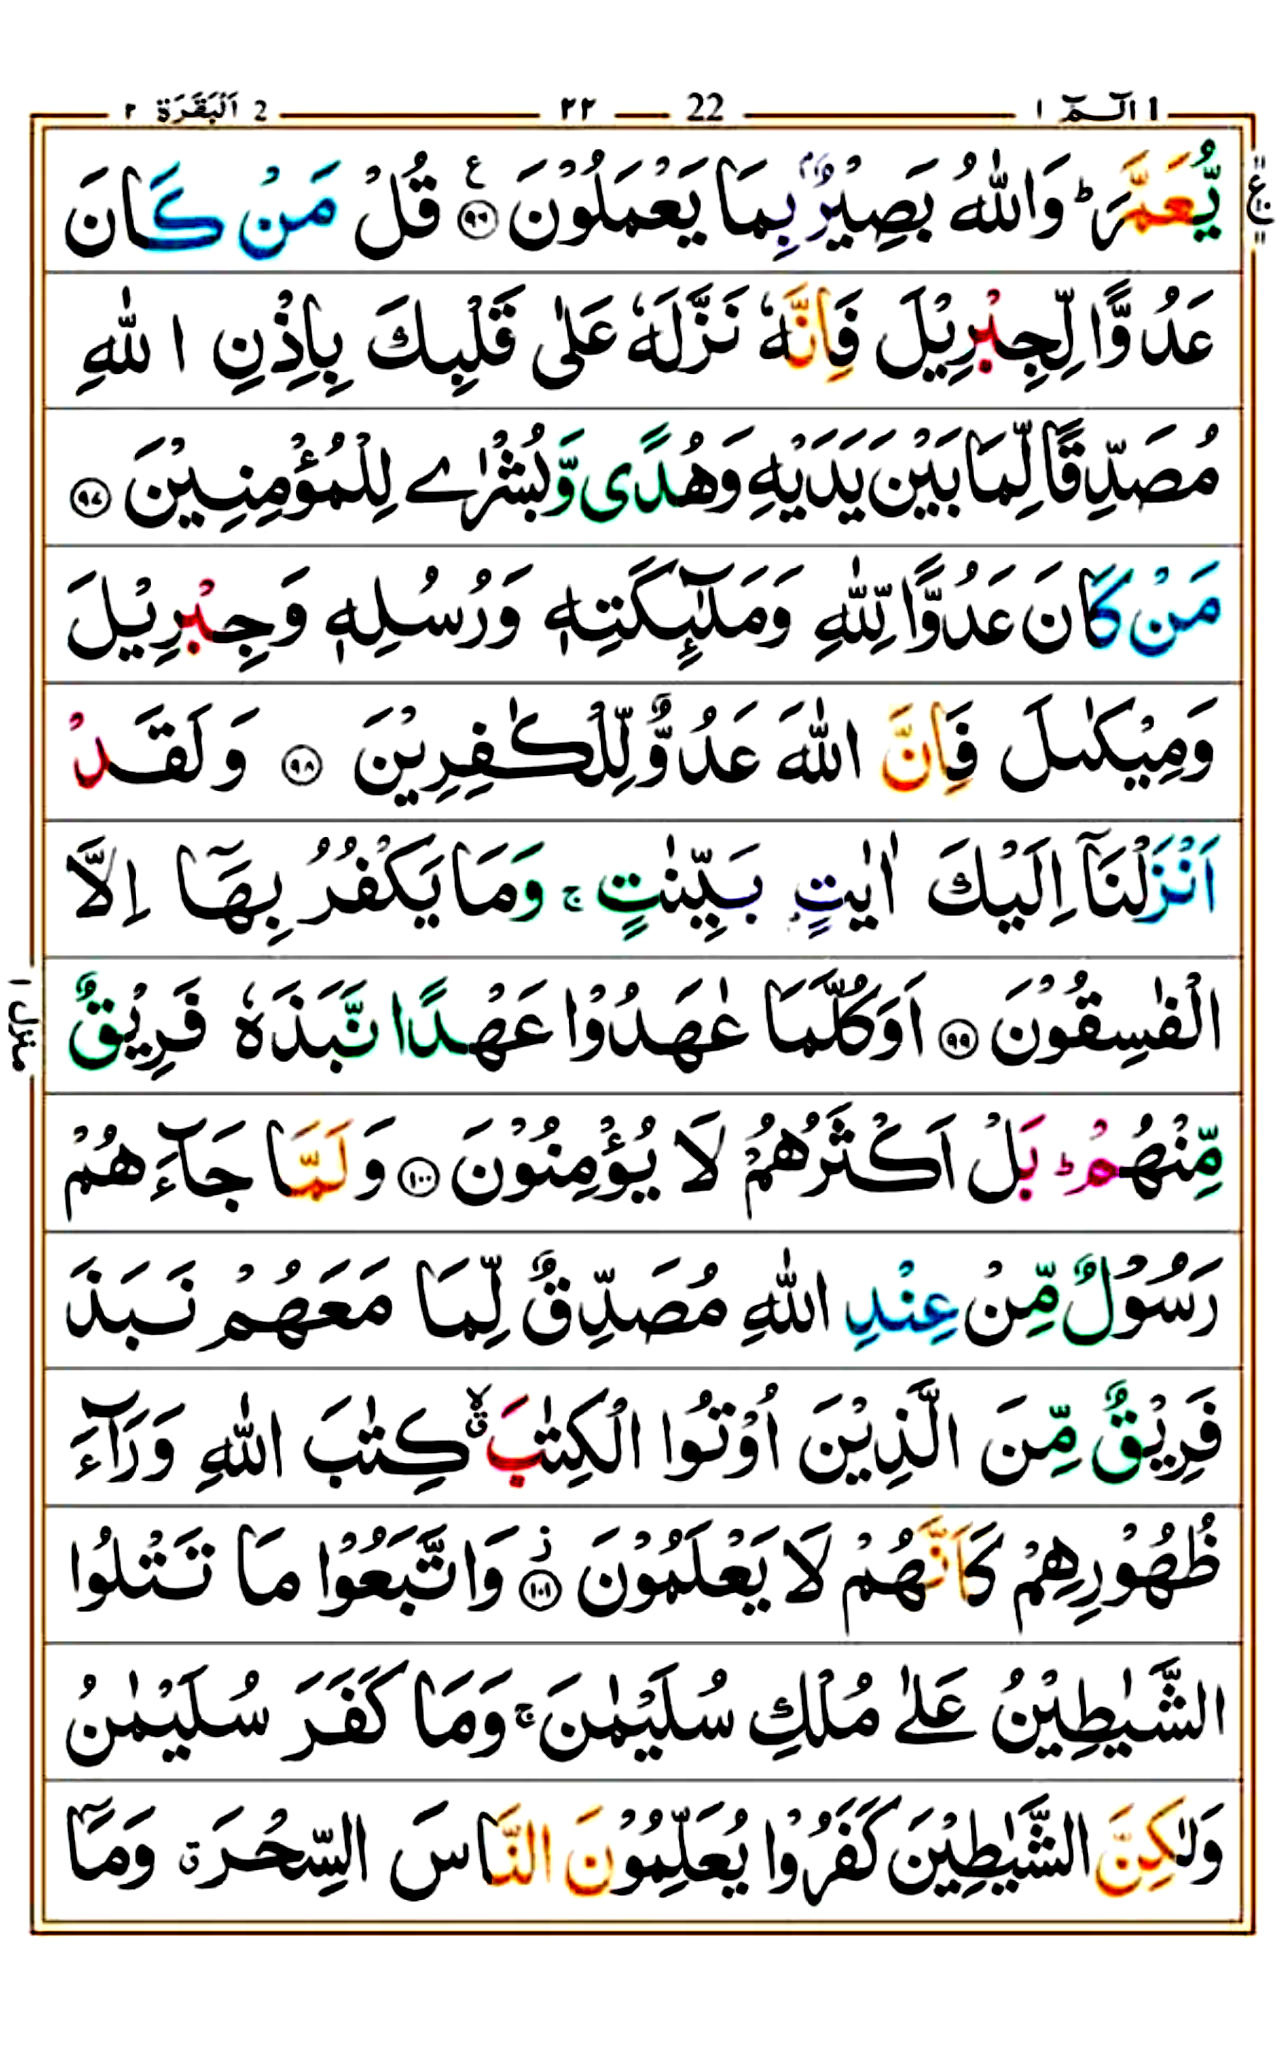 1 الٓـمّٓ ١ 22 ٢٢ 2 اَلْبَقَرَة ٢
يُّعَمَّرَ ؕ وَاللّٰهُ بَصِيْرٌۢ بِمَا يَعْمَلُوْنَ ۧ ﴿٩٦﴾ قُلْ مَنْ كَانَ
ع ١٠
عَدُوًّا لِّجِبْرِيْلَ فَاِنَّهٗ نَزَّلَهٗ عَلٰى قَلْبِكَ بِاِذْنِ اللّٰهِ
مُصَدِّقًا لِّمَا بَيْنَ يَدَيْهِ وَهُدًى وَّبُشْرٰے لِلْمُؤْمِنِيْنَ ﴿٩٧﴾
مَنْ كَانَ عَدُوًّا لِّلّٰهِ وَمَلٰٓئِكَتِهٖ وَرُسُلِهٖ وَجِبْرِيْلَ
وَمِيْكٰىلَ فَاِنَّ اللّٰهَ عَدُوٌّ لِّلْكٰفِرِيْنَ ﴿٩٨﴾ وَلَقَدْ
اَنْزَلْنَاۤ اِلَيْكَ اٰيٰتٍۭ بَيِّنٰتٍ ۚ وَمَا يَكْفُرُ بِهَاۤ اِلَّا
الْفٰسِقُوْنَ ﴿٩٩﴾ اَوَكُلَّمَا عٰهَدُوْا عَهْدًا نَّبَذَهٗ فَرِيْقٌ
منزل ١
مِّنْهُمْ ؕ بَلْ اَكْثَرُهُمْ لَا يُؤْمِنُوْنَ ﴿١٠٠﴾ وَلَمَّا جَآءَهُمْ
رَسُوْلٌ مِّنْ عِنْدِ اللّٰهِ مُصَدِّقٌ لِّمَا مَعَهُمْ نَبَذَ
فَرِيْقٌ مِّنَ الَّذِيْنَ اُوْتُوا الْكِتٰبَ ۙۗ كِتٰبَ اللّٰهِ وَرَآءَ
ظُهُوْرِهِمْ كَاَنَّهُمْ لَا يَعْلَمُوْنَ ؗ ﴿١٠١﴾ وَاتَّبَعُوْا مَا تَتْلُوا
الشَّيٰطِيْنُ عَلٰے مُلْكِ سُلَيْمٰنَ ۚ وَمَا كَفَرَ سُلَيْمٰنُ
وَلٰكِنَّ الشَّيٰطِيْنَ كَفَرُوْا يُعَلِّمُوْنَ النَّاسَ السِّحْرَ ۃ وَمَاۤ